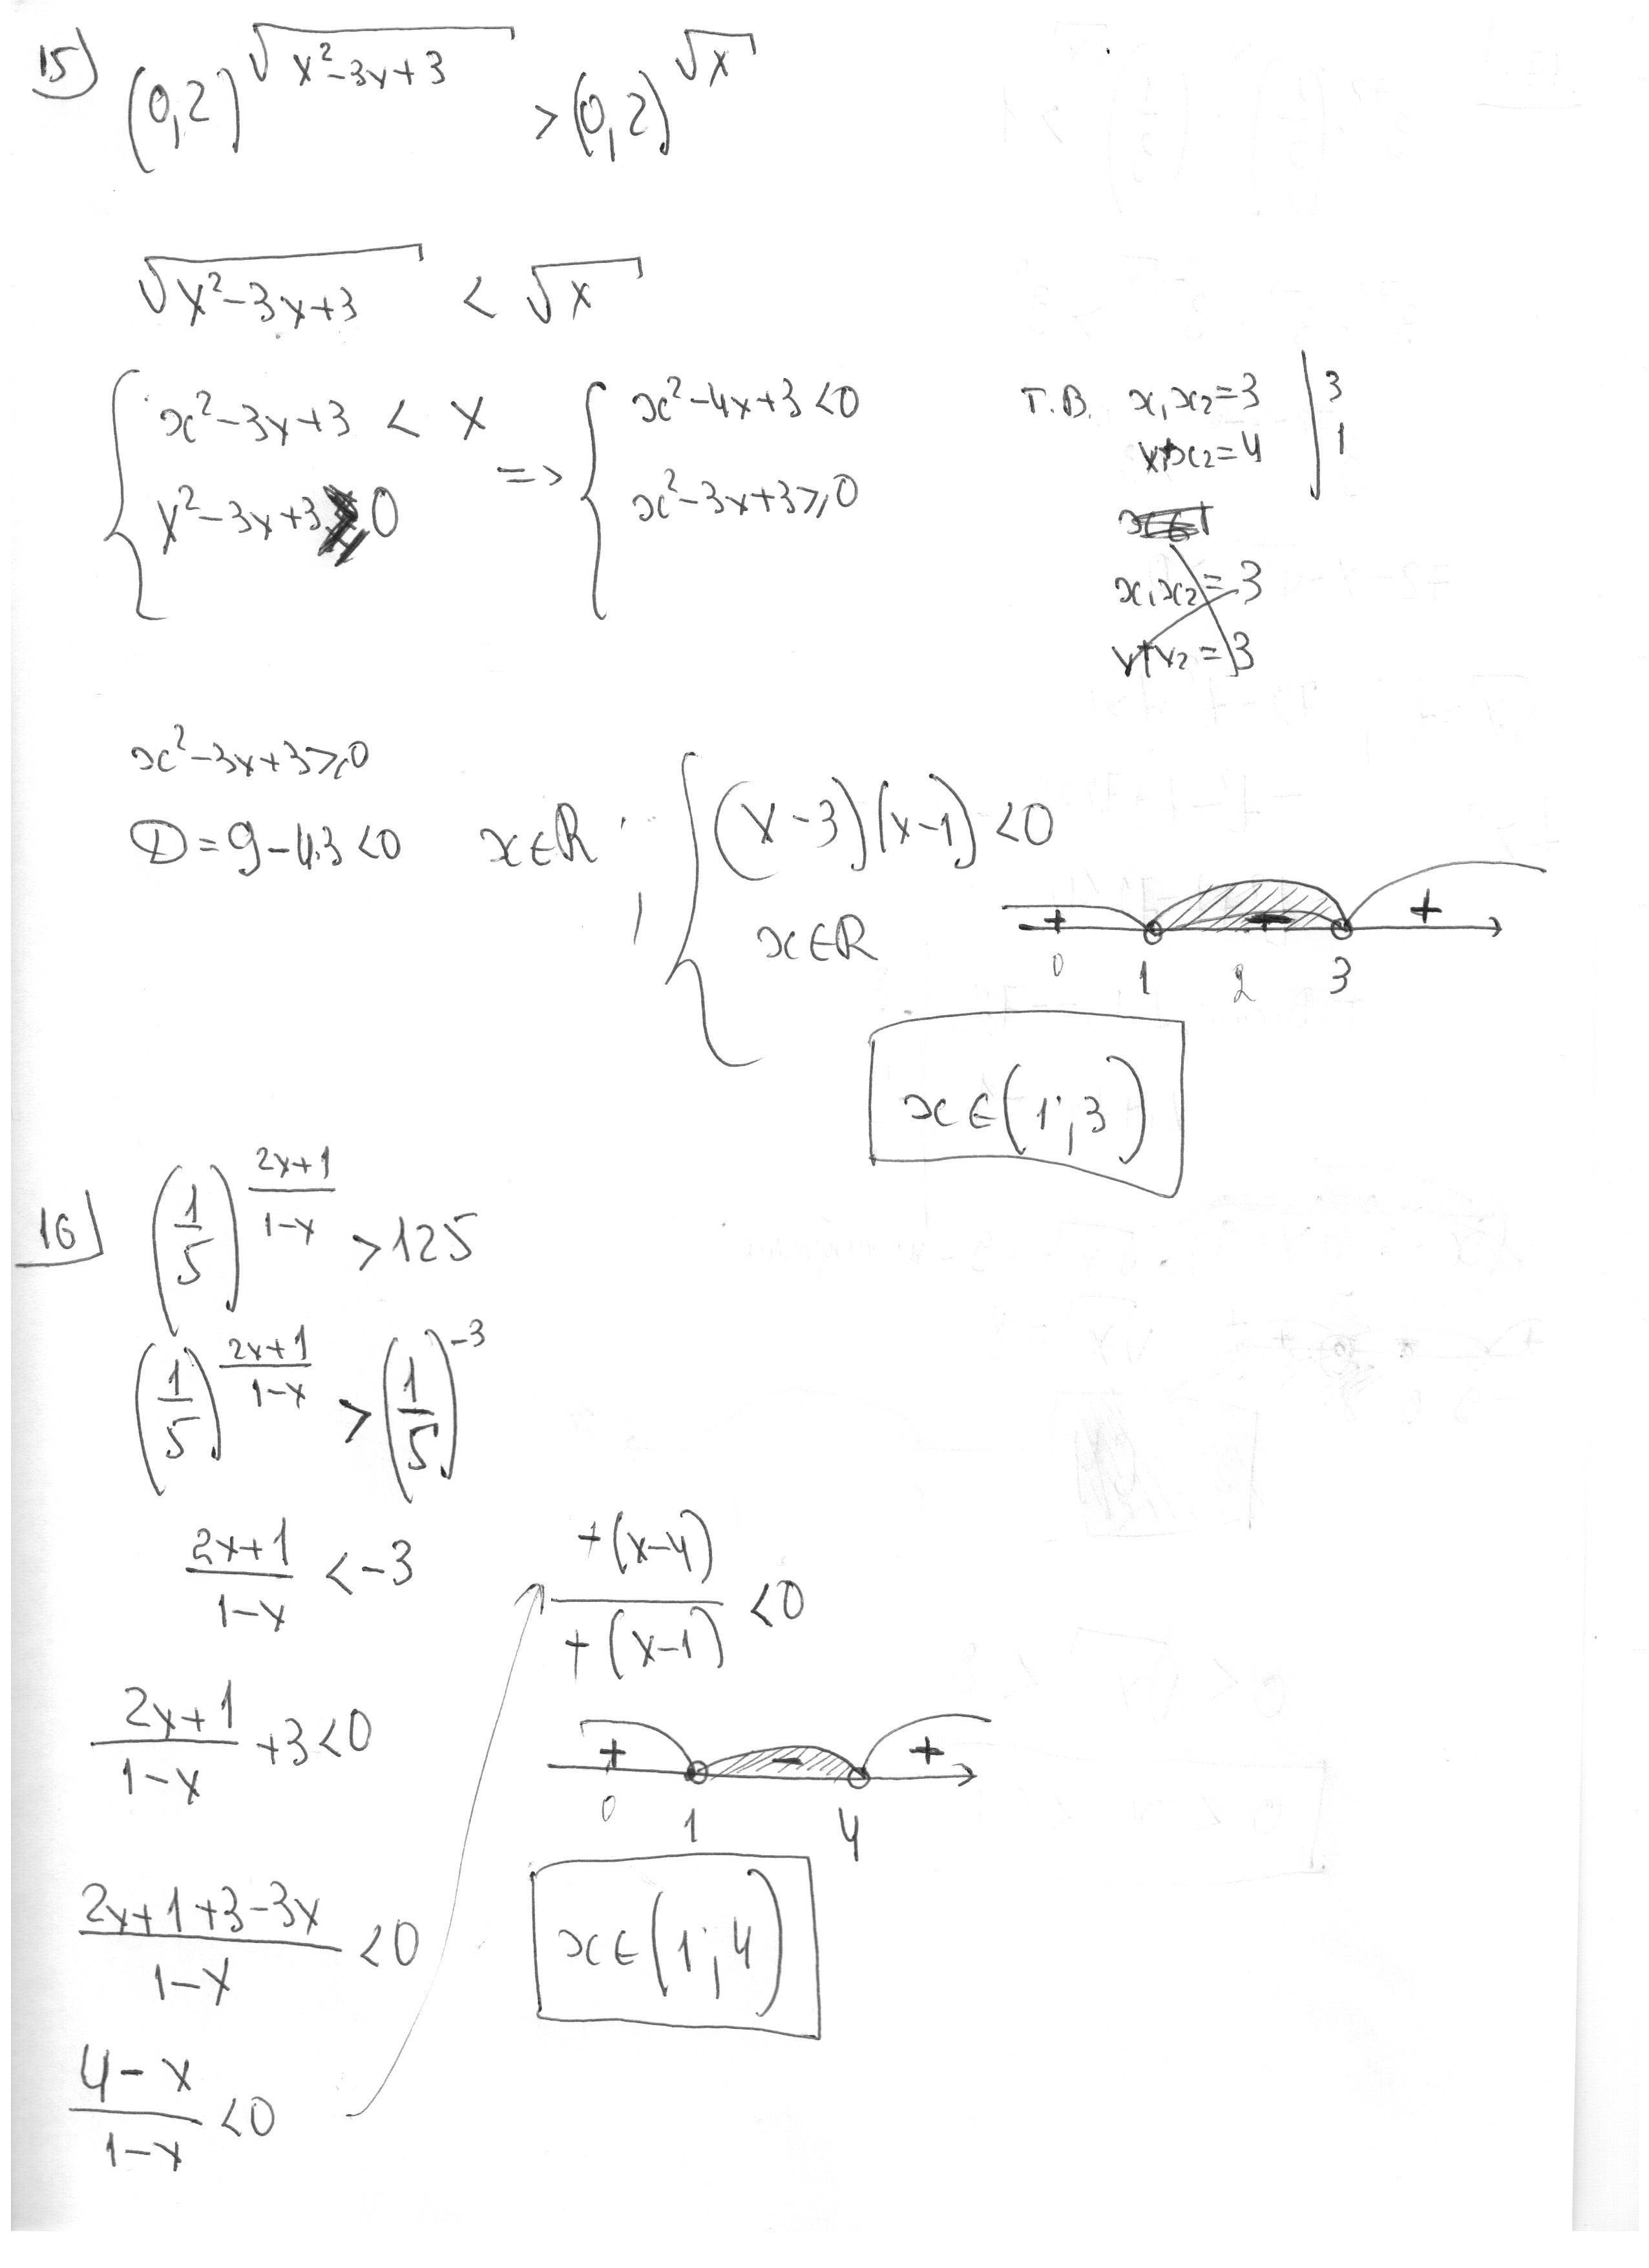 15) (0,2)^√(x²-3x+3) > (0,2)^√x
√(x²-3x+3) < √x
{ x²-3x+3 < x => { x²-4x+3<0
x²-3x+3 ⩾ 0 x²-3x+3⩾0
Т.В. x₁x₂=3 | 3
x₁+x₂=4 | 1
x₁x₂=3
x₁+x₂=3
x²-3x+3⩾0
D=9-4·3<0 x∈R ; { (x-3)(x-1)<0
x∈R
+ - +
0 1 2 3
x∈(1;3)
16) (1/5)^((2x+1)/(1-x)) >125
(1/5)^((2x+1)/(1-x)) > (1/5)^-3
(2x+1)/(1-x) < -3
(2x+1)/(1-x) +3<0
(2x+1+3-3x)/(1-x) <0
(4-x)/(1-x) <0
+(x-4)/+(x-1) <0
+ - +
0 1 4
x∈(1;4)